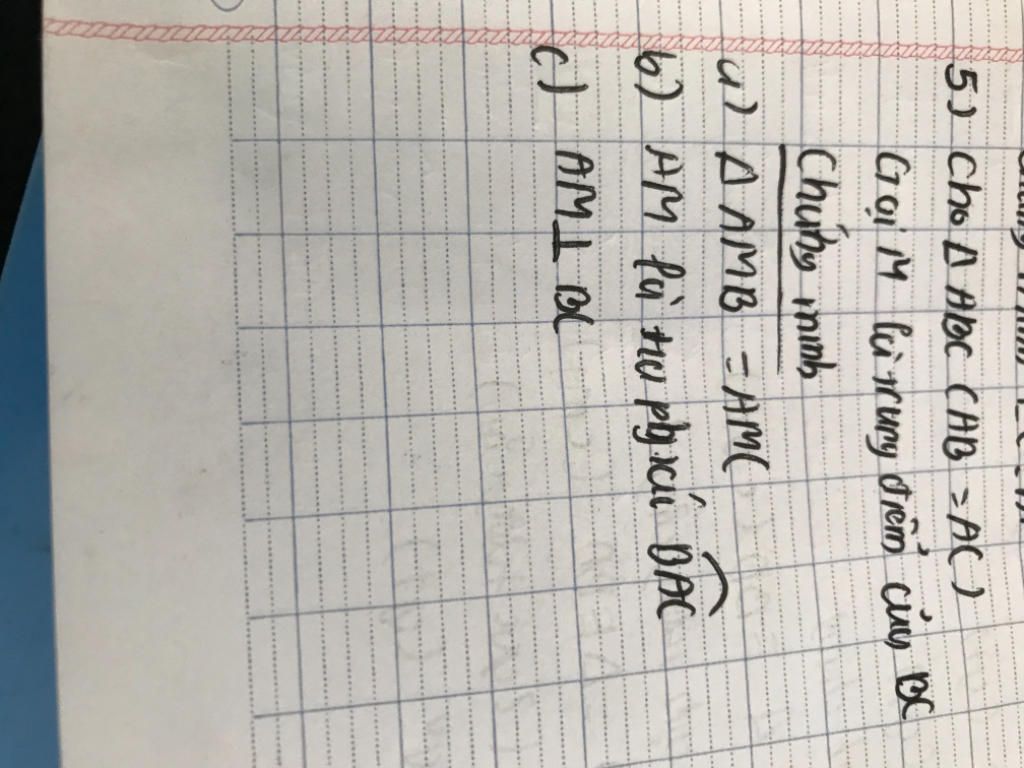 5) Cho Δ ABC (AB = AC)
Gọi M là trung điểm của BC
Chứng minh
a) Δ AMB = AMC
b) AM là tia pg của BAC
c) AM ⊥ BC